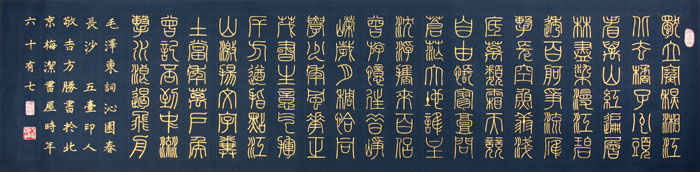 獨立寒秋湘江
北去橘子洲頭
看萬山紅遍層
林盡染漫江碧
透百舸爭流鷹
擊長空魚翔淺
底萬類霜天競
自由悵寥廓問
蒼茫大地誰主
沉浮攜來百侶
曾遊憶往昔崢
嶸歲月稠恰同
學少年風華正
茂書生意氣揮
斥方遒指點江
山激揚文字糞
土當年萬戶侯
曾記否到中流
擊水浪遏飛舟
毛澤東詞沁園春
長沙 五臺印人
敬吉方勝書於北
京梅潔書屋時年
六十有七